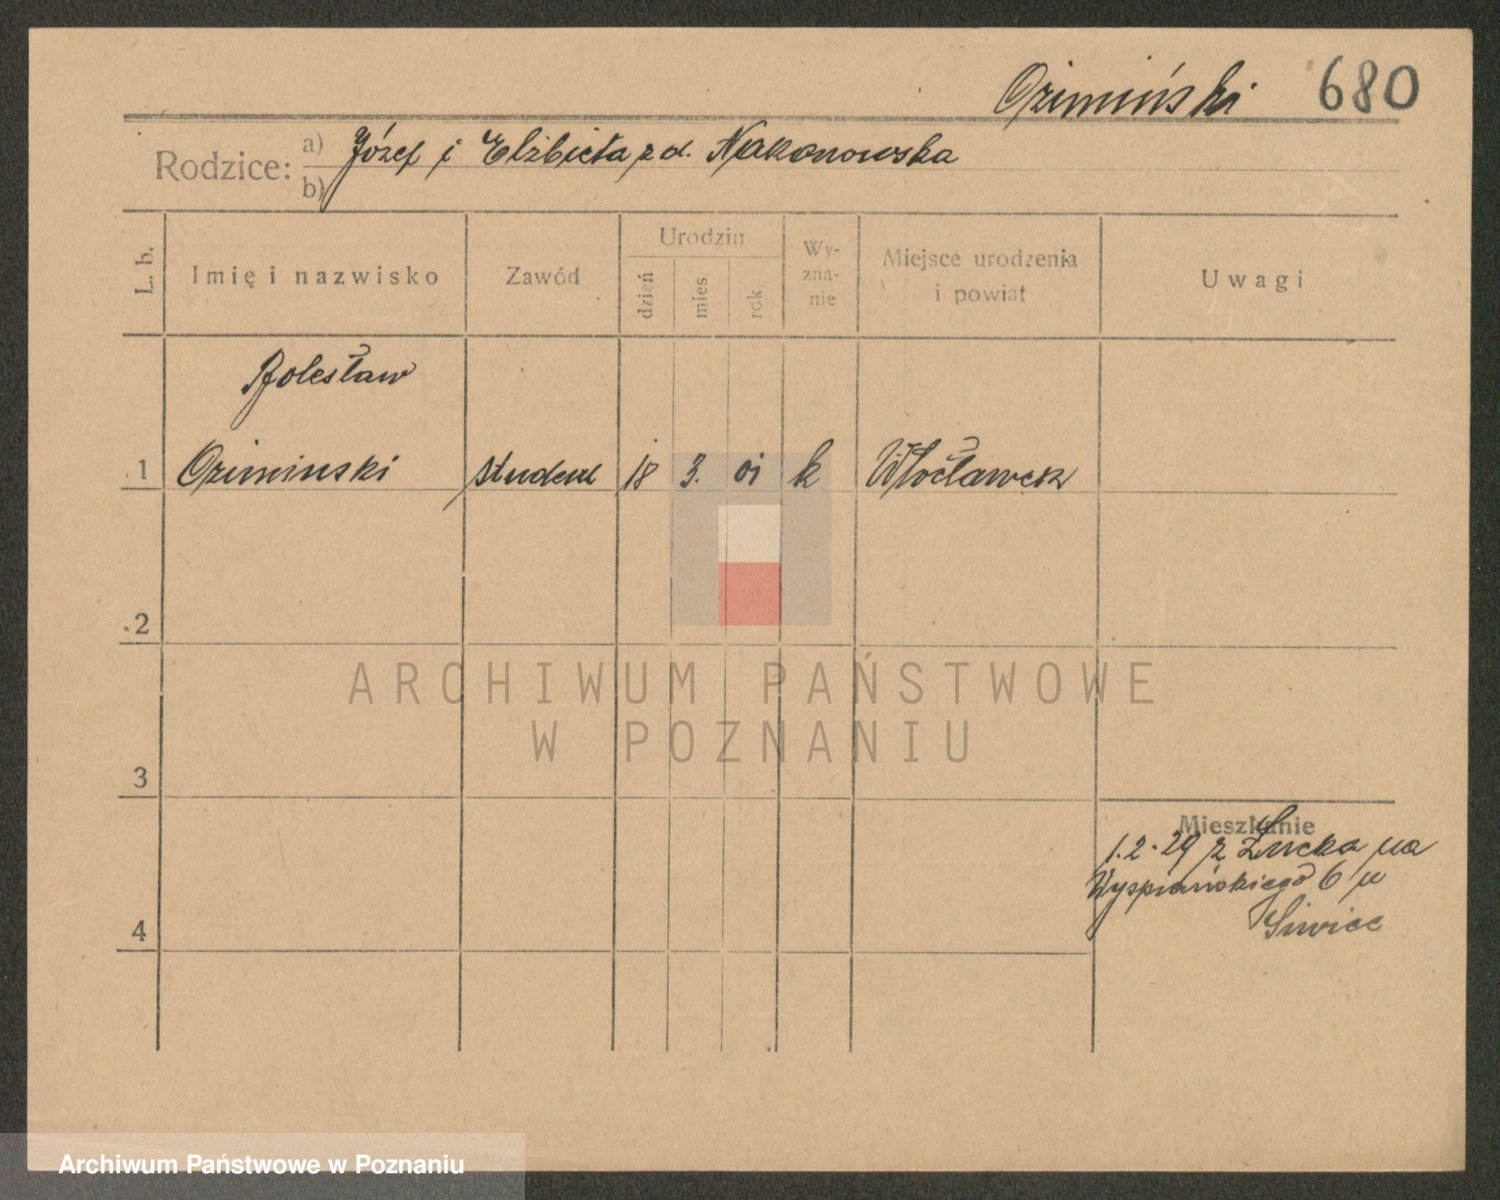 Ozimiński 680
Rodzice: a) Józef i Elżbieta z d. Nakonowska
b)
L. b. Imię i nazwisko Zawód Urodzin dzień mies. rok Wy-zna-nie Miejsce urodzenia i powiat Uwagi
Bolesław
1 Oziminski student 18 3. 01 k Włocławek
2
ARCHIWUM PAŃSTWOWE
W POZNANIU
3
Mieszkanie
1.2.29 z Łucka na
Wyspiańskiego 6 u
Siwiec
4
Archiwum Państwowe w Poznaniu